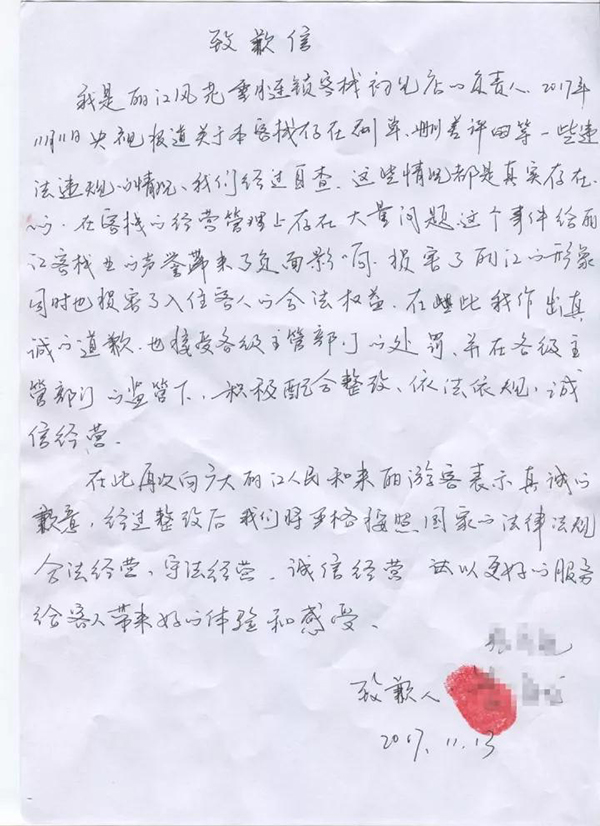 致歉信
我是丽江风花雪月连锁客栈初见店的负责人。2017年
11月11日央视报道关于本客栈存在刷单、删差评等一些违
法违规的情况、我们经过自查、这些情况都是真实存在
的、在客栈的经营管理上存在大量问题这个事件给丽
江客栈业的声誉带来了负面影响、损害了丽江的形象
同时也损害了入住客人的合法权益、在此我作出真
诚的道歉、也接受各级主管部门的处罚、并在各级主
管部门的监管下、积极配合整改、依法依规、诚
信经营。
在此再次向广大丽江人民和来丽游客表示真诚的
歉意，经过整改后我们将严格按照国家的法律法规
合法经营、守法经营、诚信经营 以更好的服务
给客人带来好的体验和感受、
致歉人
2017.11.13